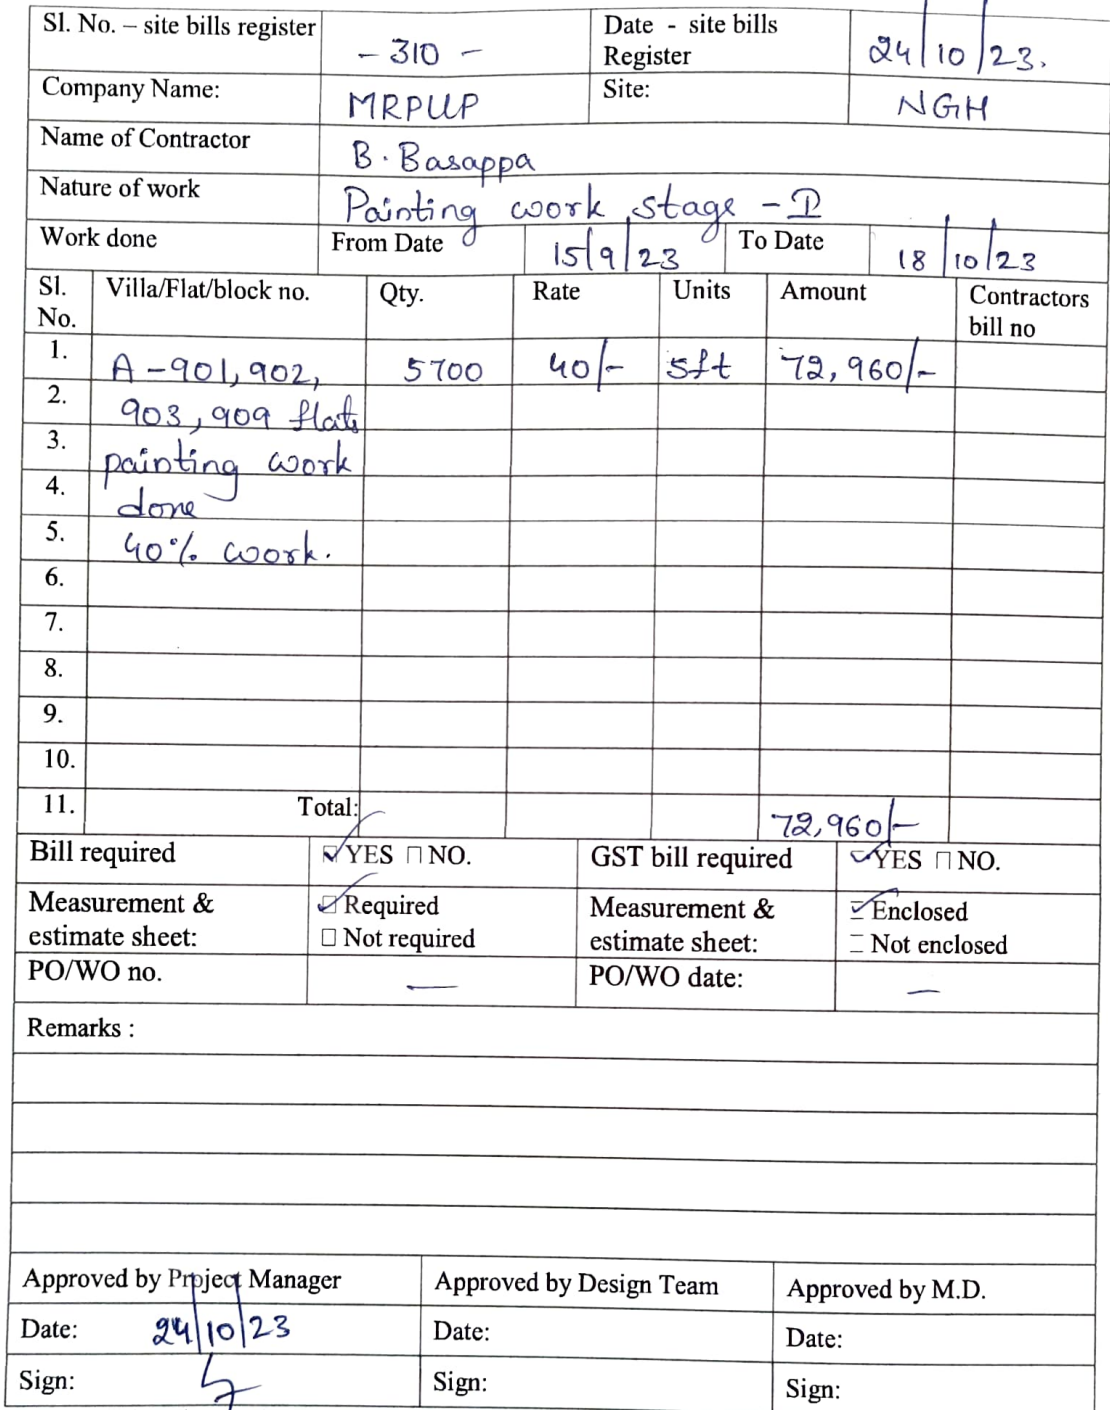 Sl. No. – site bills register - 310 - Date - site bills Register 24/10/23.
Company Name: MRPLLP Site: NGH
Name of Contractor B. Basappa
Nature of work Painting work stage - I
Work done From Date 15/9/23 To Date 18/10/23
Sl. No. Villa/Flat/block no. Qty. Rate Units Amount Contractors bill no
1. A-901, 902, 5700 40/- sft 72,960/-
2. 903, 909 flats
3. painting work
4. done
5. 40% work.
6.
7.
8.
9.
10.
11. Total: 72,960/-
Bill required ☑ YES ☐ NO. GST bill required ☑ YES ☐ NO.
Measurement & estimate sheet: ☑ Required Measurement & estimate sheet: ☑ Enclosed
☐ Not required ☐ Not enclosed
PO/WO no. — PO/WO date: —
Remarks :
Approved by Project Manager Approved by Design Team Approved by M.D.
Date: 24/10/23 Date: Date:
Sign: Sign: Sign: